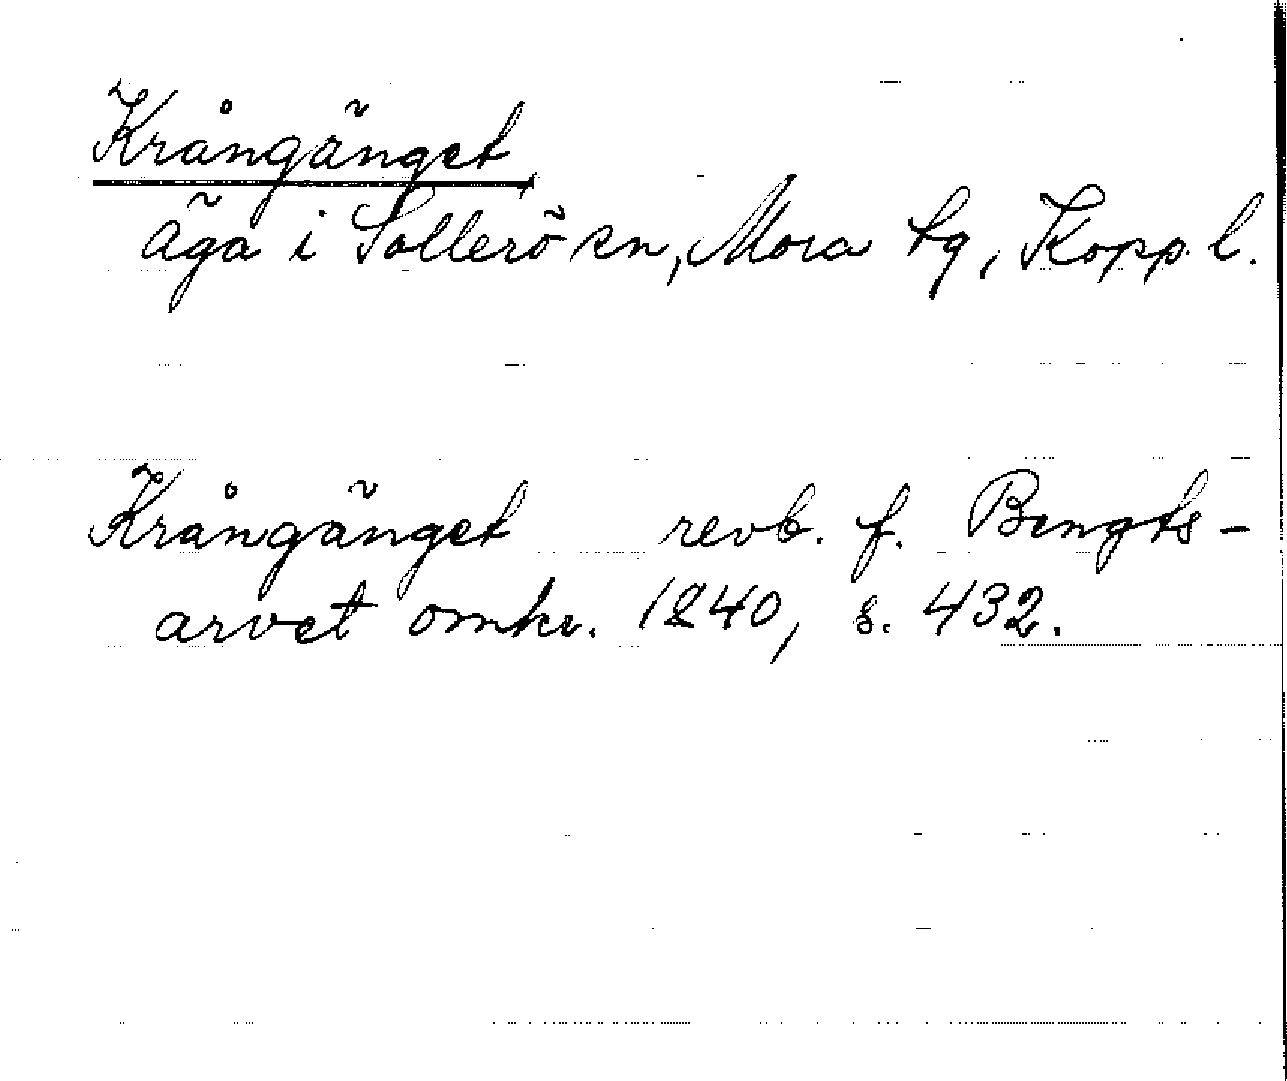 Krångänget,
äga i Sollerö sn, Mora tg, Kopp. l.
Krångänget revb. f. Bengts-
arvet omkr. 1840, s. 432.